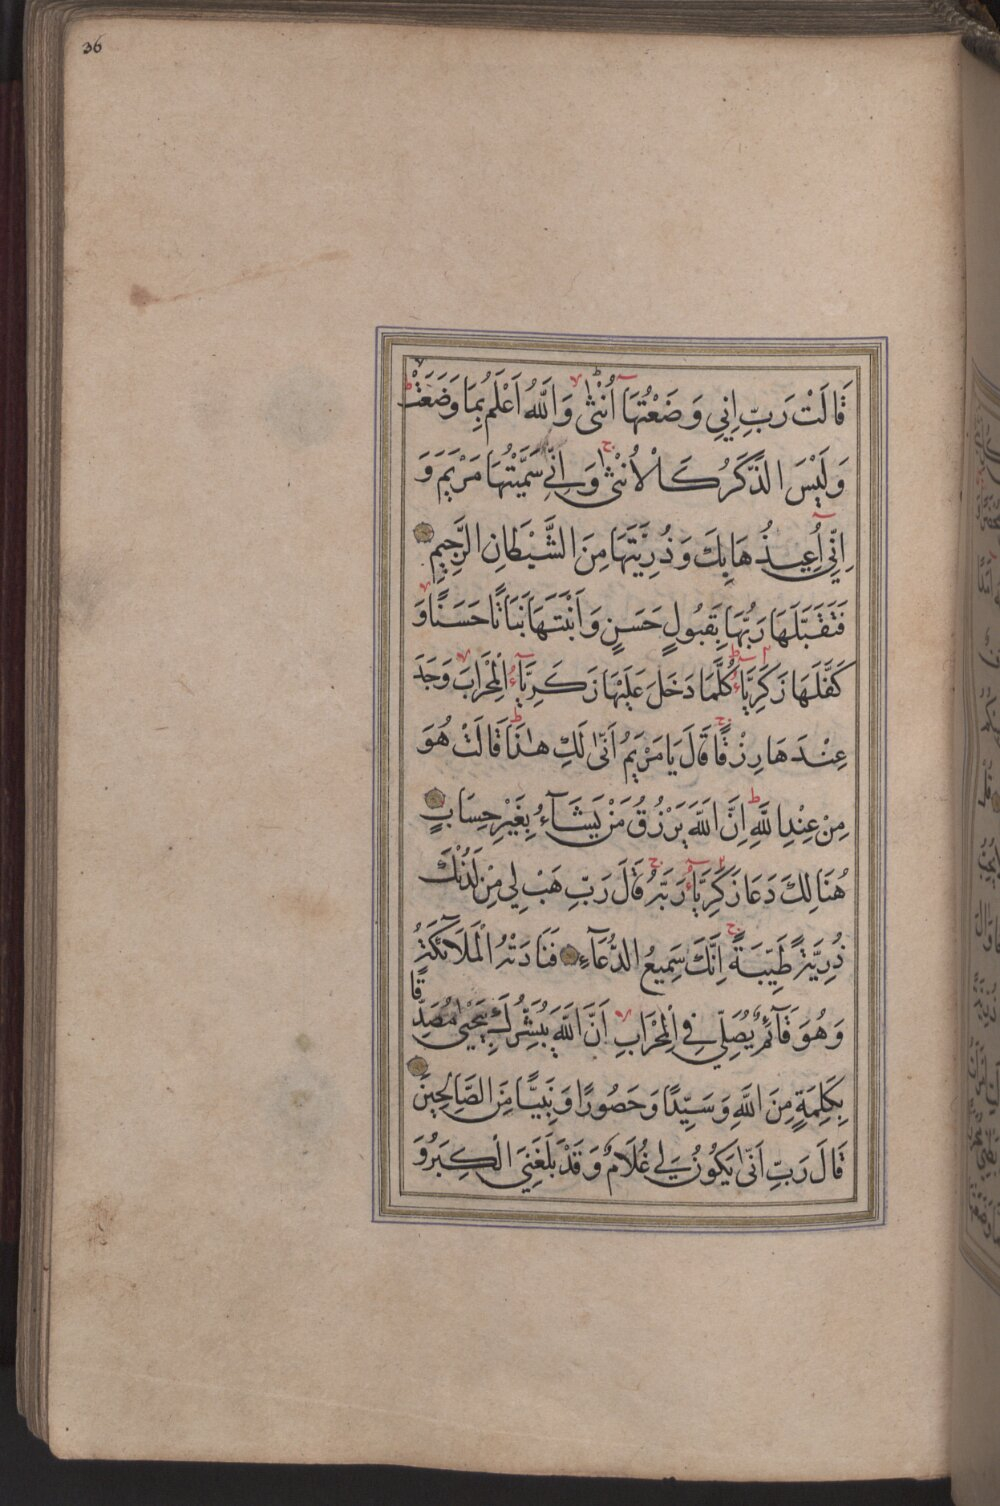 36
قَالَتْ رَبِّ اِنِّي وَضَعْتُهَآ اُنْثٰى وَاللّٰهُ اَعْلَمُ بِمَا وَضَعَتْ
وَلَيْسَ الذَّكَرُ كَالْاُنْثٰى وَاِنِّي سَمَّيْتُهَا مَرْيَمَ وَ
اِنِّيٓ اُعِيذُهَا بِكَ وَذُرِّيَّتَهَا مِنَ الشَّيْطَانِ الرَّجِيمِ
فَتَقَبَّلَهَا رَبُّهَا بِقَبُولٍ حَسَنٍ وَاَنْبَتَهَا نَبَاتًا حَسَنًا وَ
كَفَّلَهَا زَكَرِيَّآءُ كُلَّمَا دَخَلَ عَلَيْهَا زَكَرِيَّآءُ الْمِحْرَابَ وَجَدَ
عِنْدَهَا رِزْقًا قَالَ يَا مَرْيَمُ اَنّٰى لَكِ هٰذَا قَالَتْ هُوَ
مِنْ عِنْدِ اللّٰهِ اِنَّ اللّٰهَ يَرْزُقُ مَنْ يَشَآءُ بِغَيْرِ حِسَابٍ
هُنَالِكَ دَعَا زَكَرِيَّآءُ رَبَّهُ قَالَ رَبِّ هَبْ لِي مِنْ لَدُنْكَ
ذُرِّيَّةً طَيِّبَةً اِنَّكَ سَمِيعُ الدُّعَآءِ فَنَادَتْهُ الْمَلَآئِكَةُ
وَهُوَ قَآئِمٌ يُصَلِّي فِي الْمِحْرَابِ اَنَّ اللّٰهَ يُبَشِّرُكَ بِيَحْيٰى مُصَدِّقًا
بِكَلِمَةٍ مِنَ اللّٰهِ وَسَيِّدًا وَحَصُورًا وَنَبِيًّا مِنَ الصَّالِحِينَ
قَالَ رَبِّ اَنّٰى يَكُونُ لِي غُلَامٌ وَقَدْ بَلَغَنِيَ الْكِبَرُ وَ